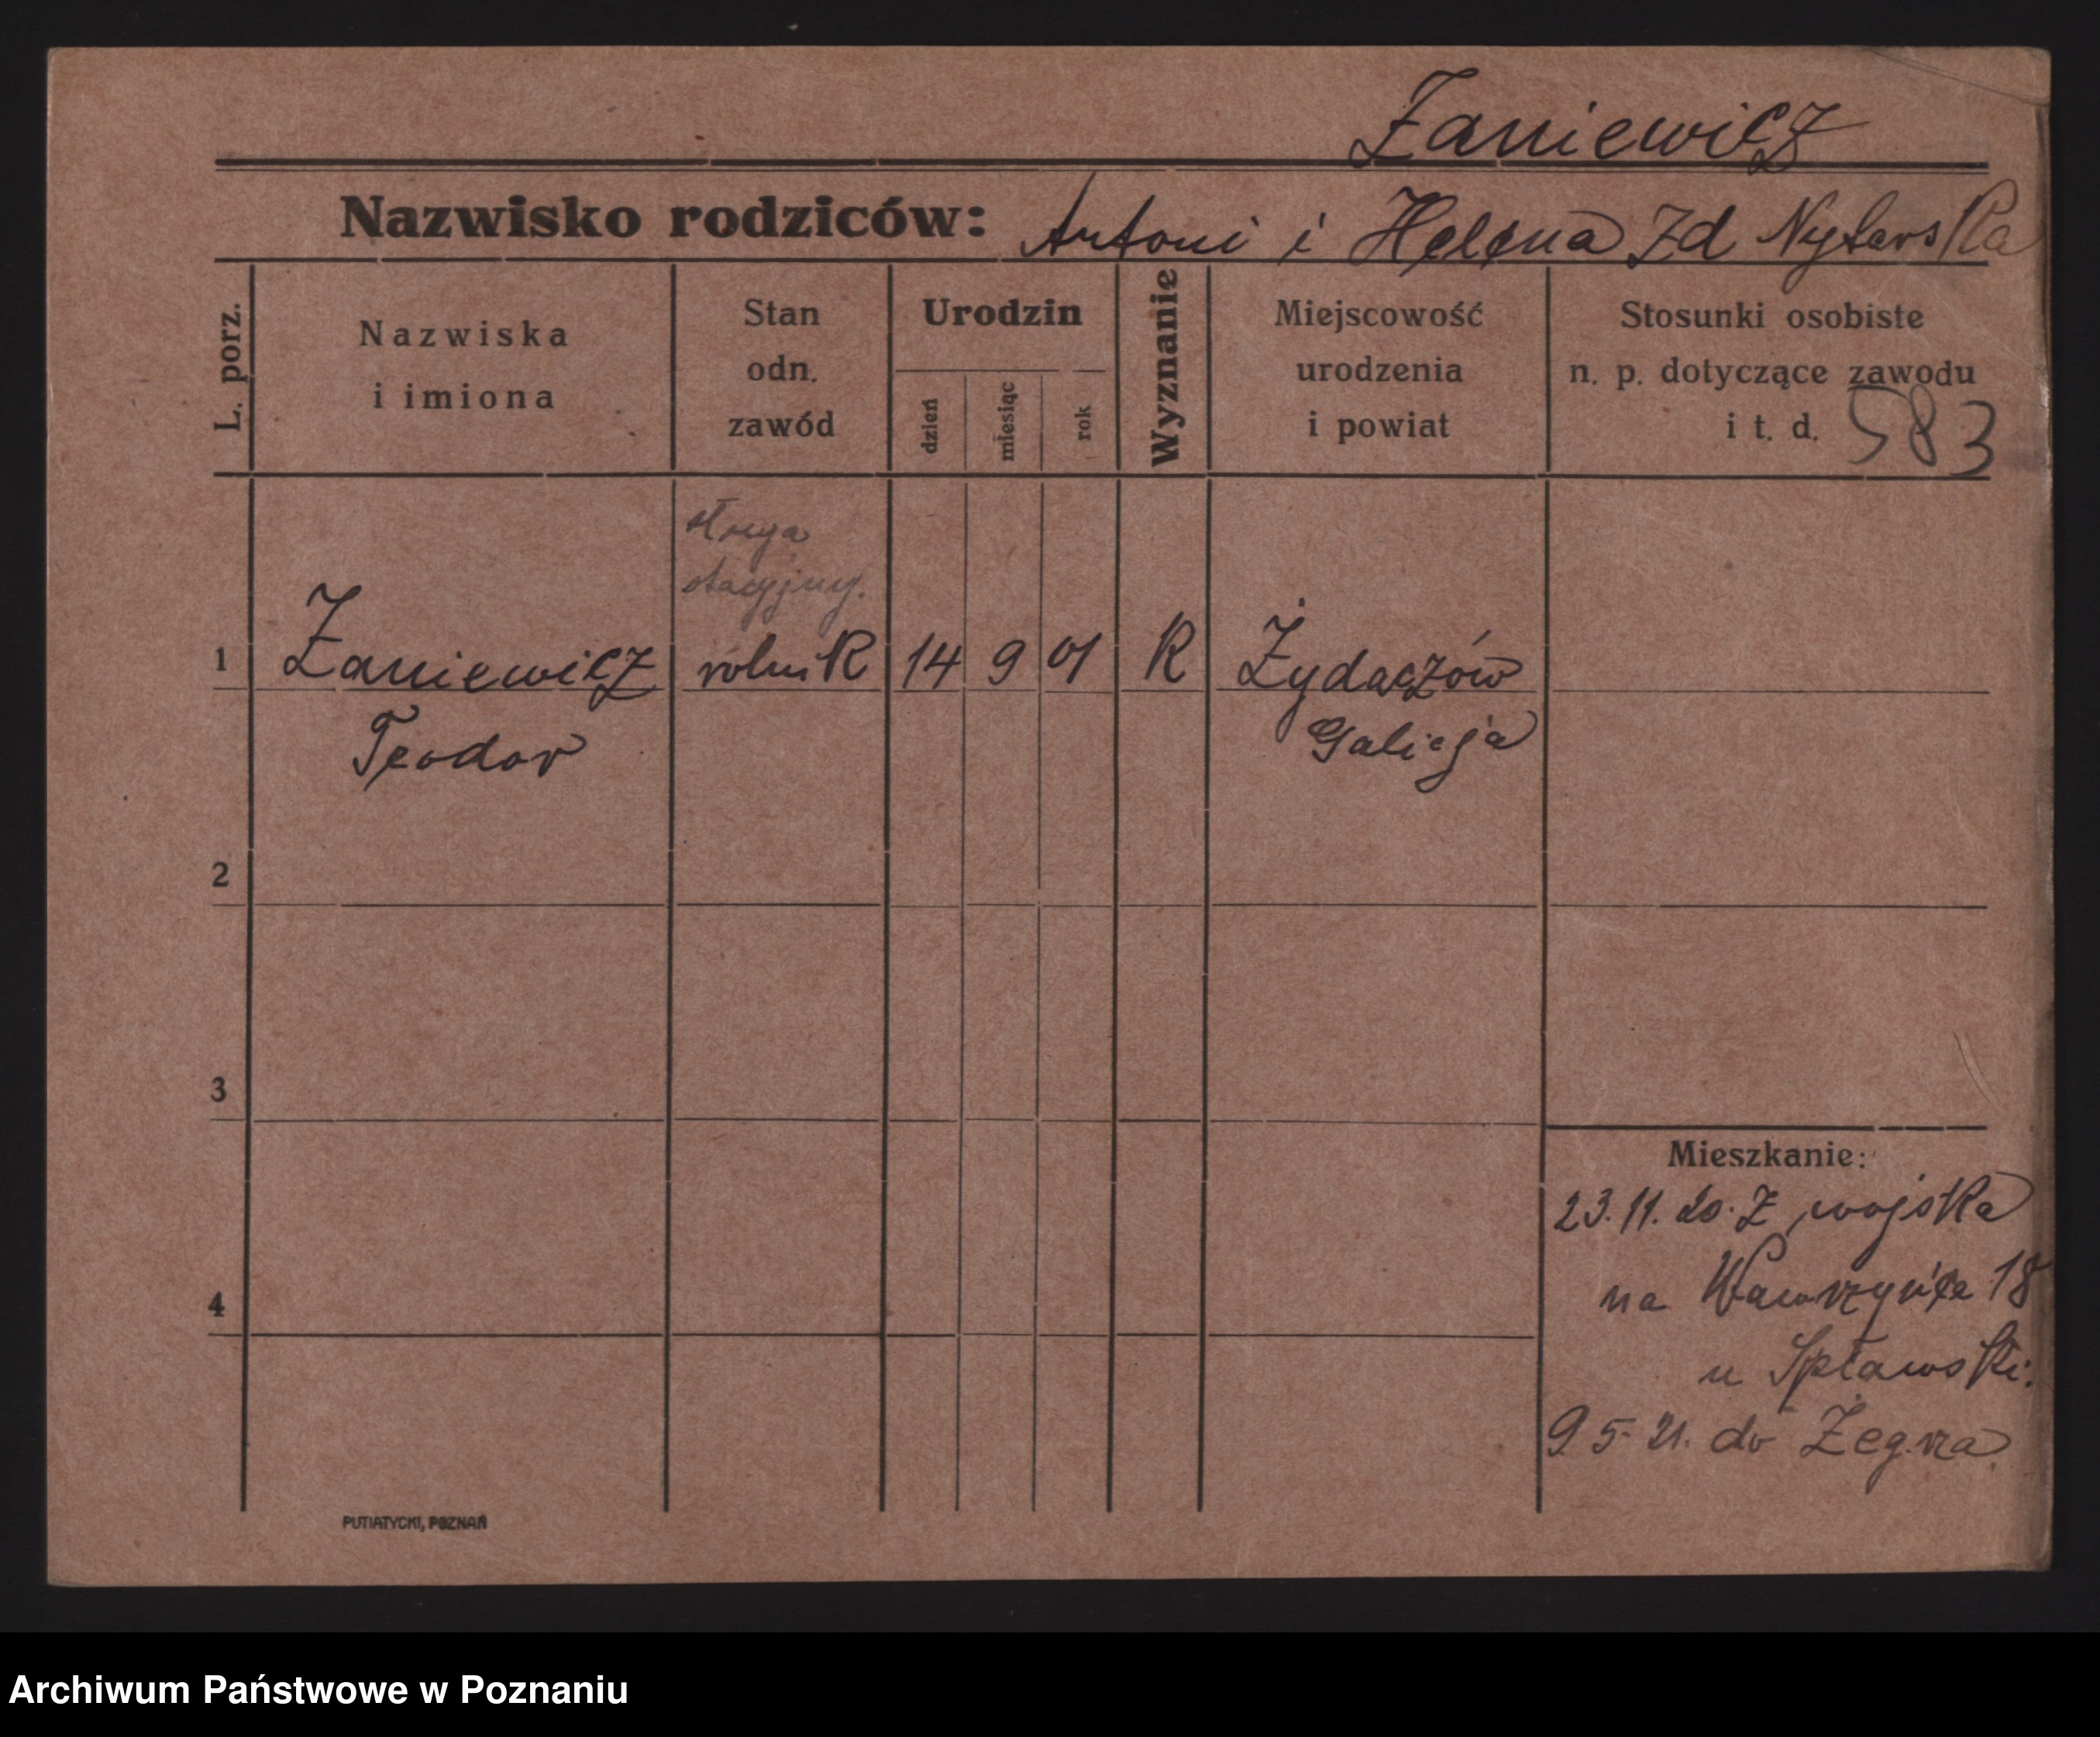 Zaniewicz
Nazwisko rodziców: Antoni i Helena zd
L. porz.
Nazwiska
i imiona
Stan
odn.
zawód
Urodzin
dzień
miesiąc
rok
Wyznanie
Miejscowość
urodzenia
i powiat
Stosunki osobiste
n. p. dotyczące zawodu
i t. d. 583
stacyjny.
1 Zaniewicz rolnik 14 9 01 R Żydaczów
Teodor Galicja
2
3
4
Mieszkanie:
23.11.20. Z wojska
na Wawrzyńca 18
u Spławski.
9 5. 21. do Żegrza
PUTIATYCKI, POZNAŃ
Archiwum Państwowe w Poznaniu